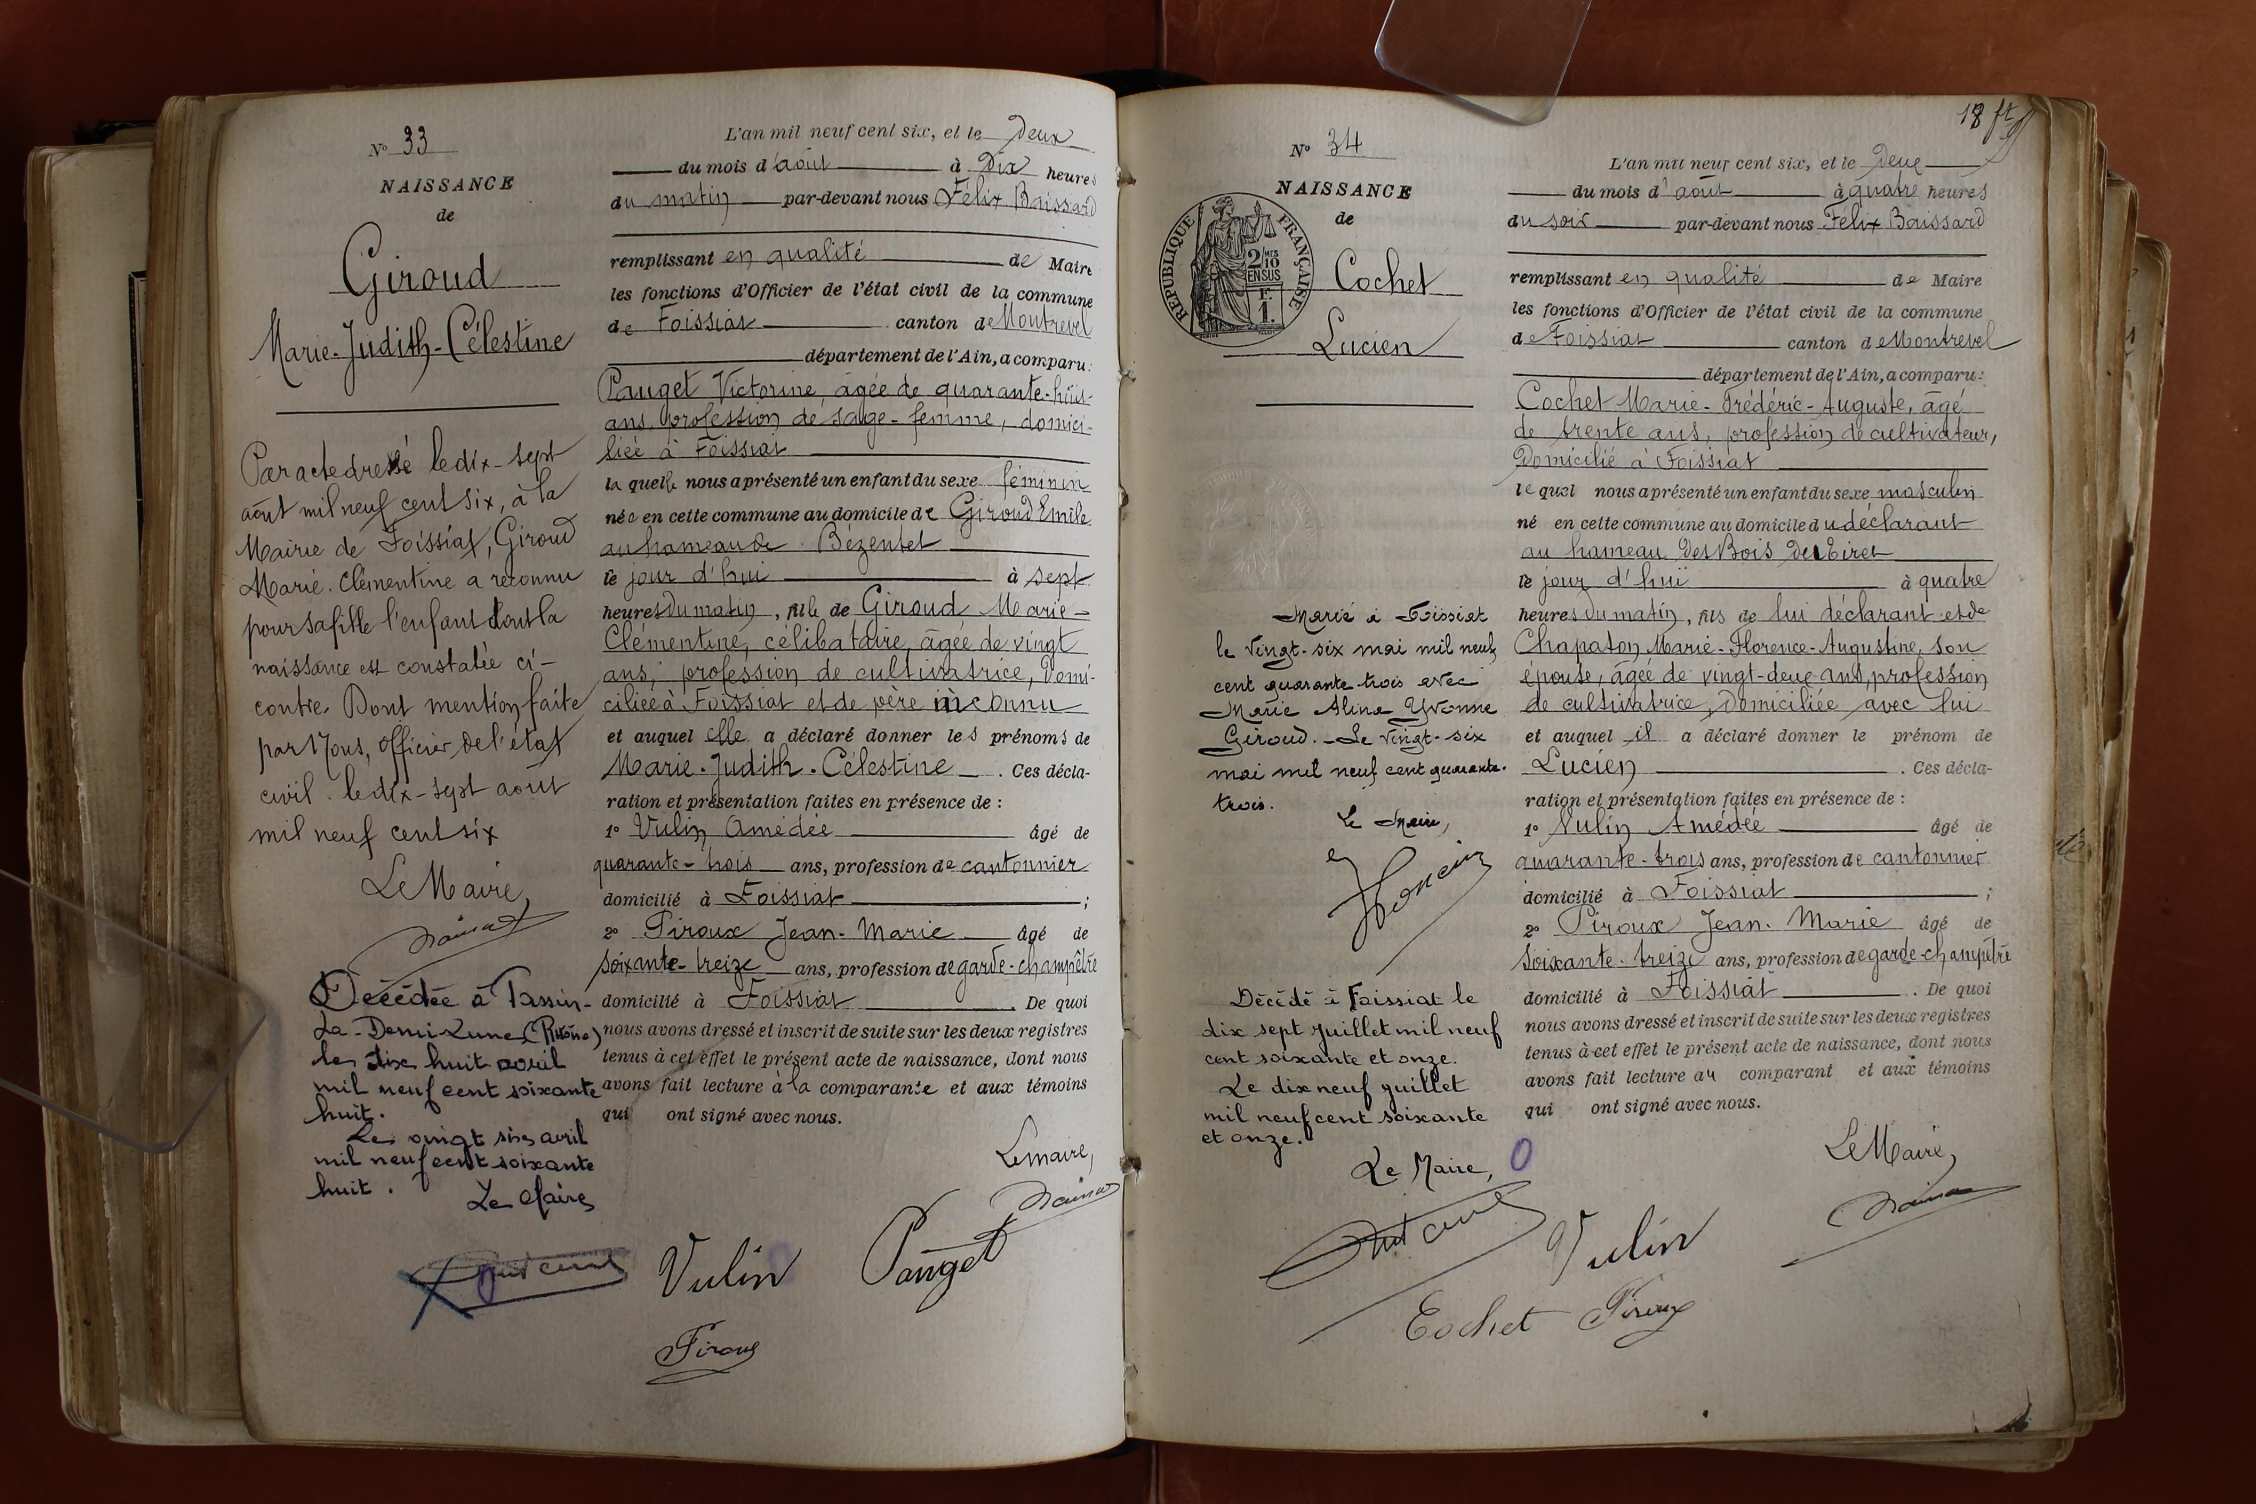 N° 33
NAISSANCE
de
Giroud
Marie-Judith-Célestine
Par acte dressé le dix-sept
août mil neuf cent six, à la
Mairie de Foissiat, Giroud
Marie-Clémentine a reconnu
pour sa fille l'enfant dont la
naissance est constatée ci-
contre. Dont mention faite
par Nous, officier de l'état
civil. le dix-sept août
mil neuf cent six
Le Maire,
Décédée à Tassin-
La-Demi-Lune (Rhône)
le dix huit avril
mil neuf cent soixante
huit.
Le vingt six avril
mil neuf cent soixante
huit.
Le Maire
L'an mil neuf cent six, et le Deux
du mois d'août à Dix heures
du matin par-devant nous Félix Baissard
remplissant en qualité de Maire
les fonctions d'Officier de l'état civil de la commune
de Foissiat canton de Montrevel
département de l'Ain, a comparu:
Pauget Victorine, âgée de quarante-huit
ans, profession de sage-femme, domici-
liée à Foissiat
la quelle nous a présenté un enfant du sexe féminin
née en cette commune au domicile de Giroud Emile
au hameau de Bézentet
le jour d'hui à sept
heures du matin, fille de Giroud Marie-
Clémentine, célibataire, âgée de vingt
ans, profession de cultivatrice, Domi-
ciliée à Foissiat et de père inconnu
et auquel elle a déclaré donner les prénoms de
Marie-Judith-Célestine. Ces décla-
ration et présentation faites en présence de :
1° Vulin Amédée âgé de
quarante-trois ans, profession de cantonnier
domicilié à Foissiat ;
2° Piroux Jean-Marie âgé de
soixante-treize ans, profession de garde-champêtre
domicilié à Foissiat. De quoi
nous avons dressé et inscrit de suite sur les deux registres
tenus à cet effet le présent acte de naissance, dont nous
avons fait lecture à la comparante et aux témoins
qui ont signé avec nous.
Le maire,
Vulin
Pauget
Piroux
18 ft
N° 34
NAISSANCE
de
RÉPUBLIQUE FRANÇAISE
2/10 MES
EN SUS
F.
1.
Cochet
Lucien
Marié à Foissiat
le vingt-six mai mil neuf
cent quarante trois avec
Marie Alina Yvonne
Giroud. - Le vingt-six
mai mil neuf cent quarante-
trois.
Le Maire,
Décédé à Foissiat le
dix sept juillet mil neuf
cent soixante et onze.
Le dix neuf juillet
mil neuf cent soixante
et onze.
Le Maire,
L'an mil neuf cent six, et le Deux
du mois d'août à quatre heures
du soir par-devant nous Félix Baissard
remplissant en qualité de Maire
les fonctions d'Officier de l'état civil de la commune
de Foissiat canton de Montrevel
département de l'Ain, a comparu:
Cochet Marie-Frédéric-Auguste, âgé
de trente ans, profession de cultivateur,
Domicilié à Foissiat
le quel nous a présenté un enfant du sexe masculin
né en cette commune au domicile du déclarant
au hameau Des Bois
le jour d'hui à quatre
heures du matin, fils de lui déclarant et de
Chapaton Marie-Florence-Augustine, son
épouse, âgée de vingt-deux ans, profession
de cultivatrice, Domiciliée avec lui
et auquel il a déclaré donner le prénom de
Lucien. Ces décla-
ration et présentation faites en présence de :
1° Vulin Amédée âgé de
quarante-trois ans, profession de cantonnier
domicilié à Foissiat ;
2° Piroux Jean-Marie âgé de
soixante-treize ans, profession de garde-champêtre
domicilié à Foissiat. De quoi
nous avons dressé et inscrit de suite sur les deux registres
tenus à cet effet le présent acte de naissance, dont nous
avons fait lecture au comparant et aux témoins
qui ont signé avec nous.
Le Maire,
Vulin
Cochet
Piroux